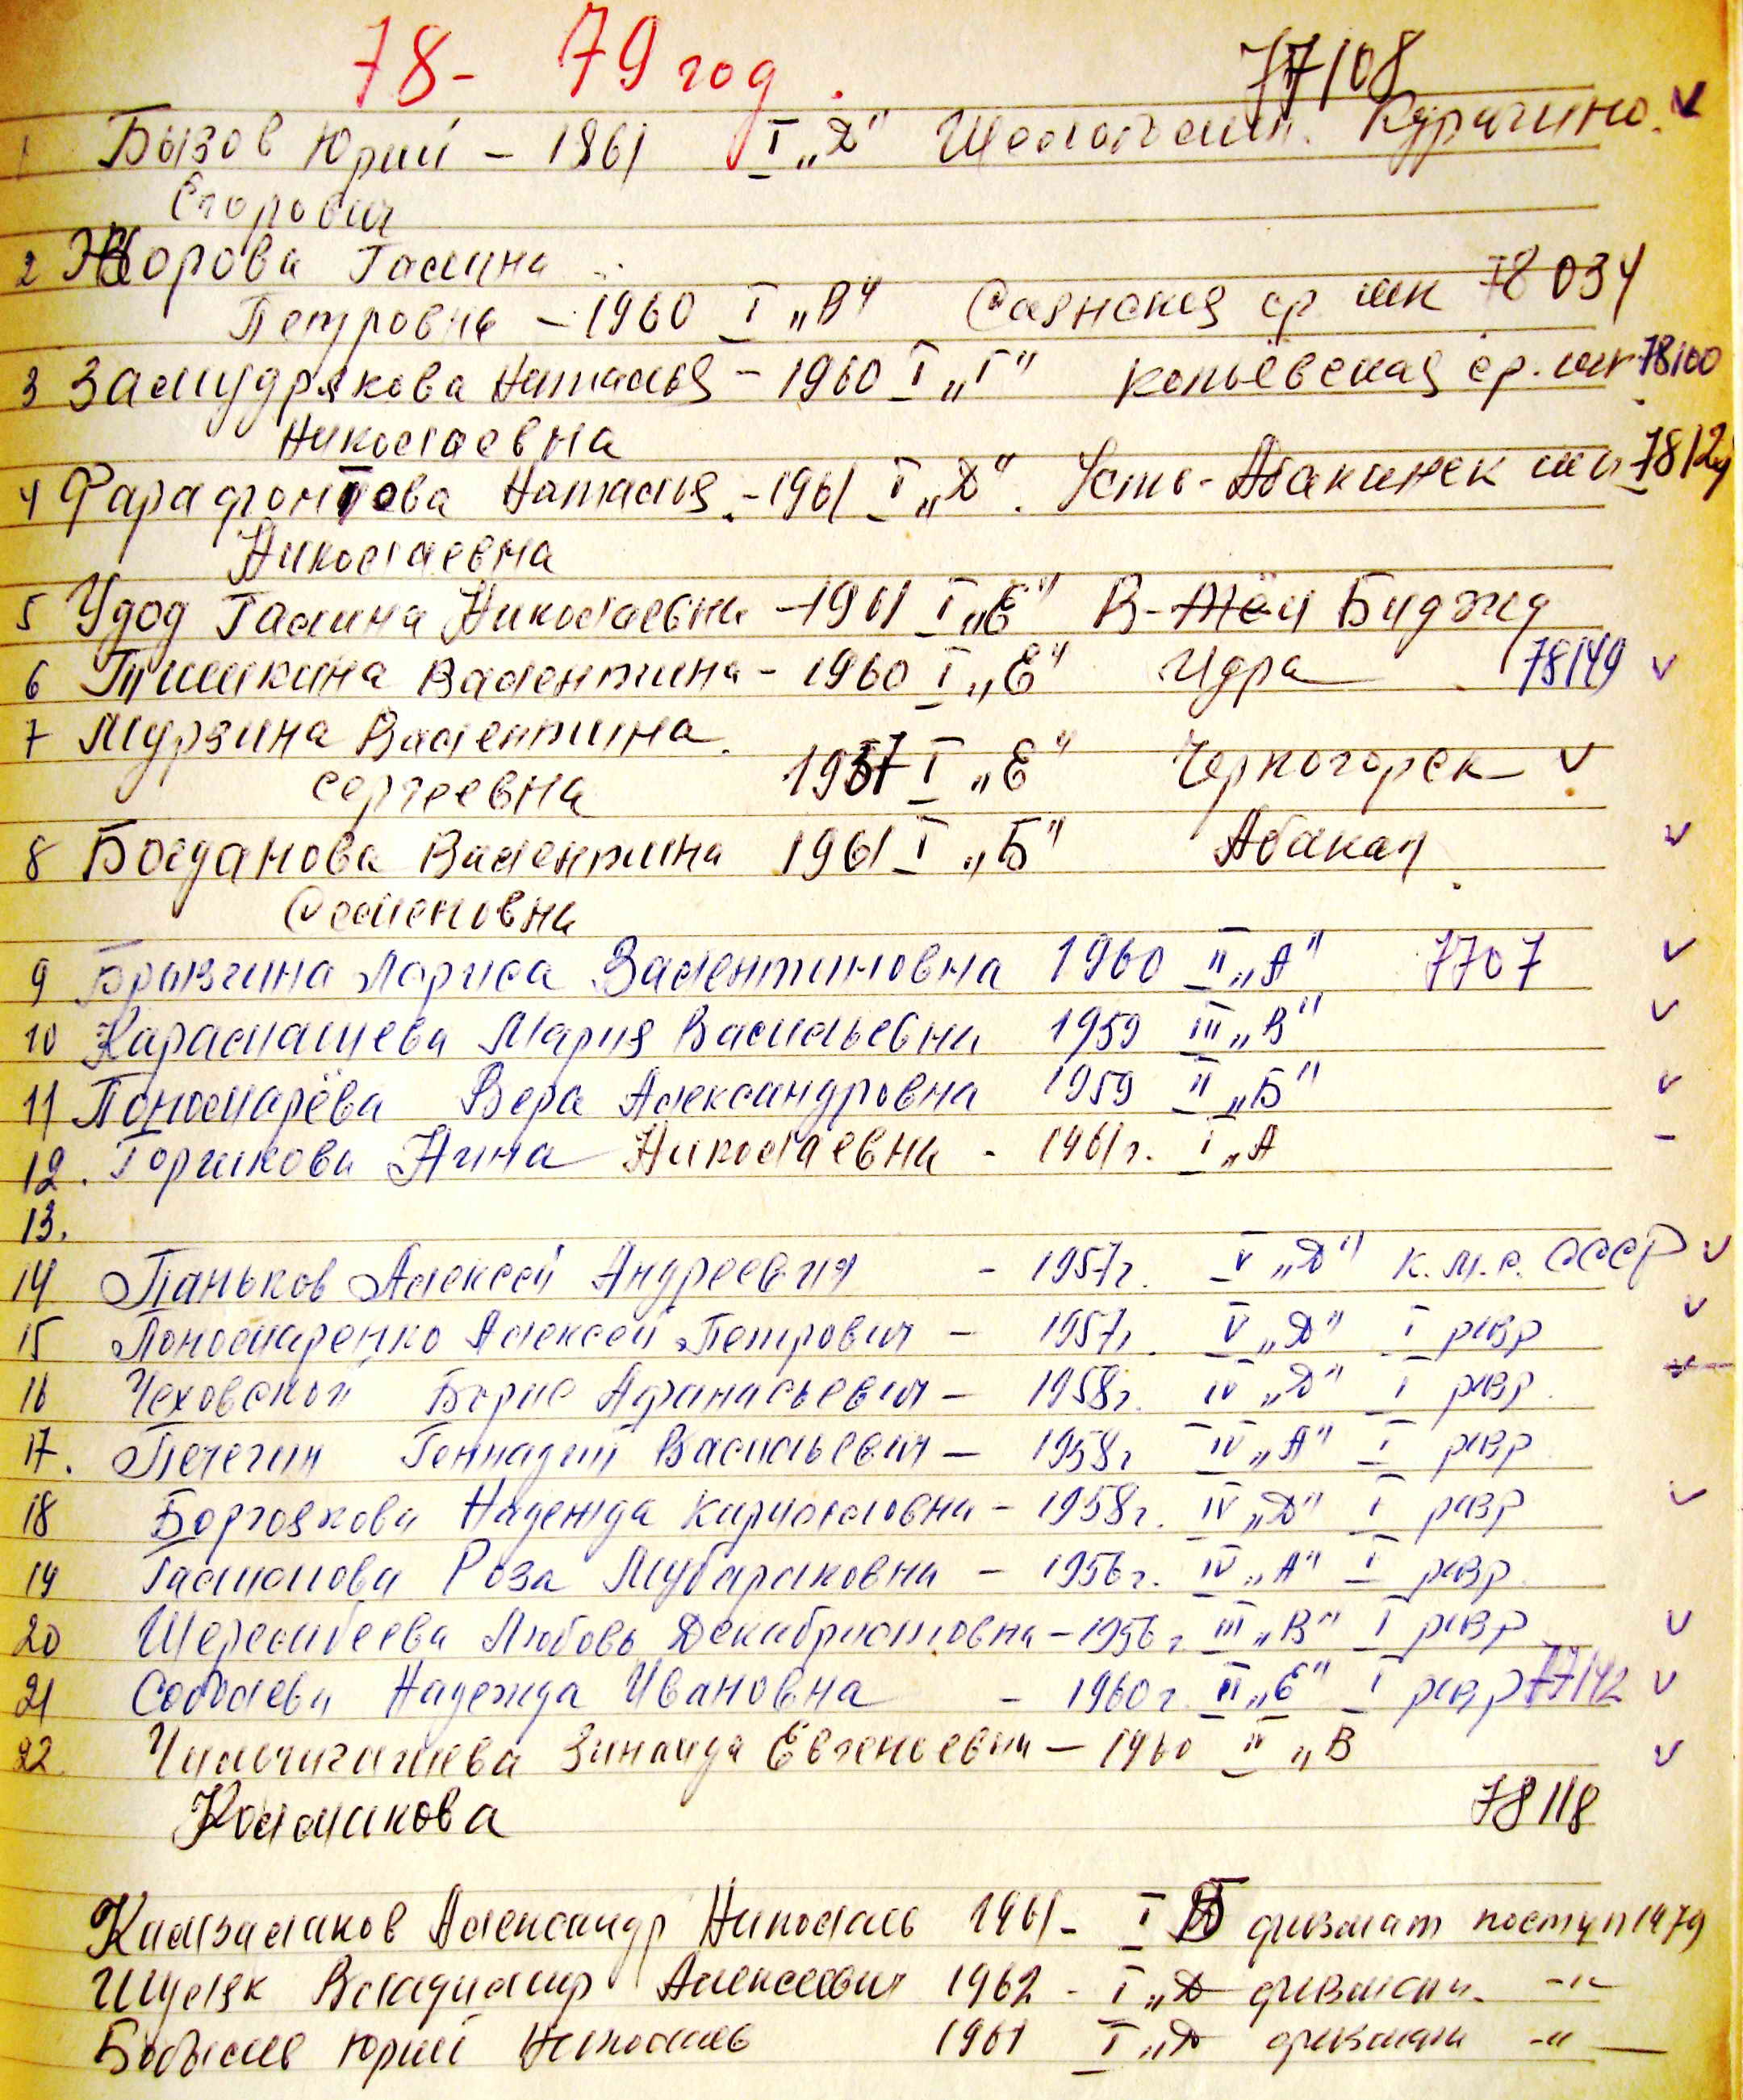 78 - 79 год.
77108
1 Бызов Юрий - 1961 I „Д" Курагино. v
Егорович
2 Жорова Галина
Петровна - 1960 I „В" Саянская ср шк 78034
3 Замудрякова Наталья - 1960 I „Г" Копьёвская ср. шк 78100
Николаевна
4 Фарафонтова Наталья - 1961 I „Д". Усть-Абаканск шк 78124
Николаевна
5 Удод Галина Николаевна - 1961 I „Е" Биджа
6 Тишкина Валентина - 1960 I „Е" Идра 78149 v
7 Мурзина Валентина
Сергеевна 1937 I „Е" Черногорск v
8 Богданова Валентина 1961 I „Б" Абакан v
Семеновна
9 Лариса Валентиновна 1960 II „А" 7707 v
10 Карамашева Мария Васильевна 1959 III „В" v
11 Пономарёва Вера Александровна 1959 II „Б" v
12. Горшкова Нина Николаевна - 1961г. I „А -
13.
14 Паньков Алексей Андреевич - 1957г. V „Д" к.м.с. СССР v
15 Пономаренко Алексей Петрович - 1957г. V „Д" I разр v
16 Чеховской Борис Афанасьевич - 1958г. IV „Д" I разр. v
17. Печегин Геннадий Васильевич - 1958г IV „А" I разр
18 Боргоякова Надежда Кирилловна - 1958г. IV „Д" I разр v
19 Роза Мубараковна - 1956г. IV „А" I разр
20 Любовь Декабристовна - 1956г III „В" I разр v
21 Соболева Надежда Ивановна - 1960г II „Е" I разр 77142 v
22 Чильчигашева Зинаида Евгеньевна - 1960 II „В v
Колмакова 78118
Александр Николаев 1961 - I физмат поступ 1979
Шуляк Владимир Алексеевич 1962 - I „Д физмат. -"-
Юрий Николаев 1961 I „Д физмат -"-